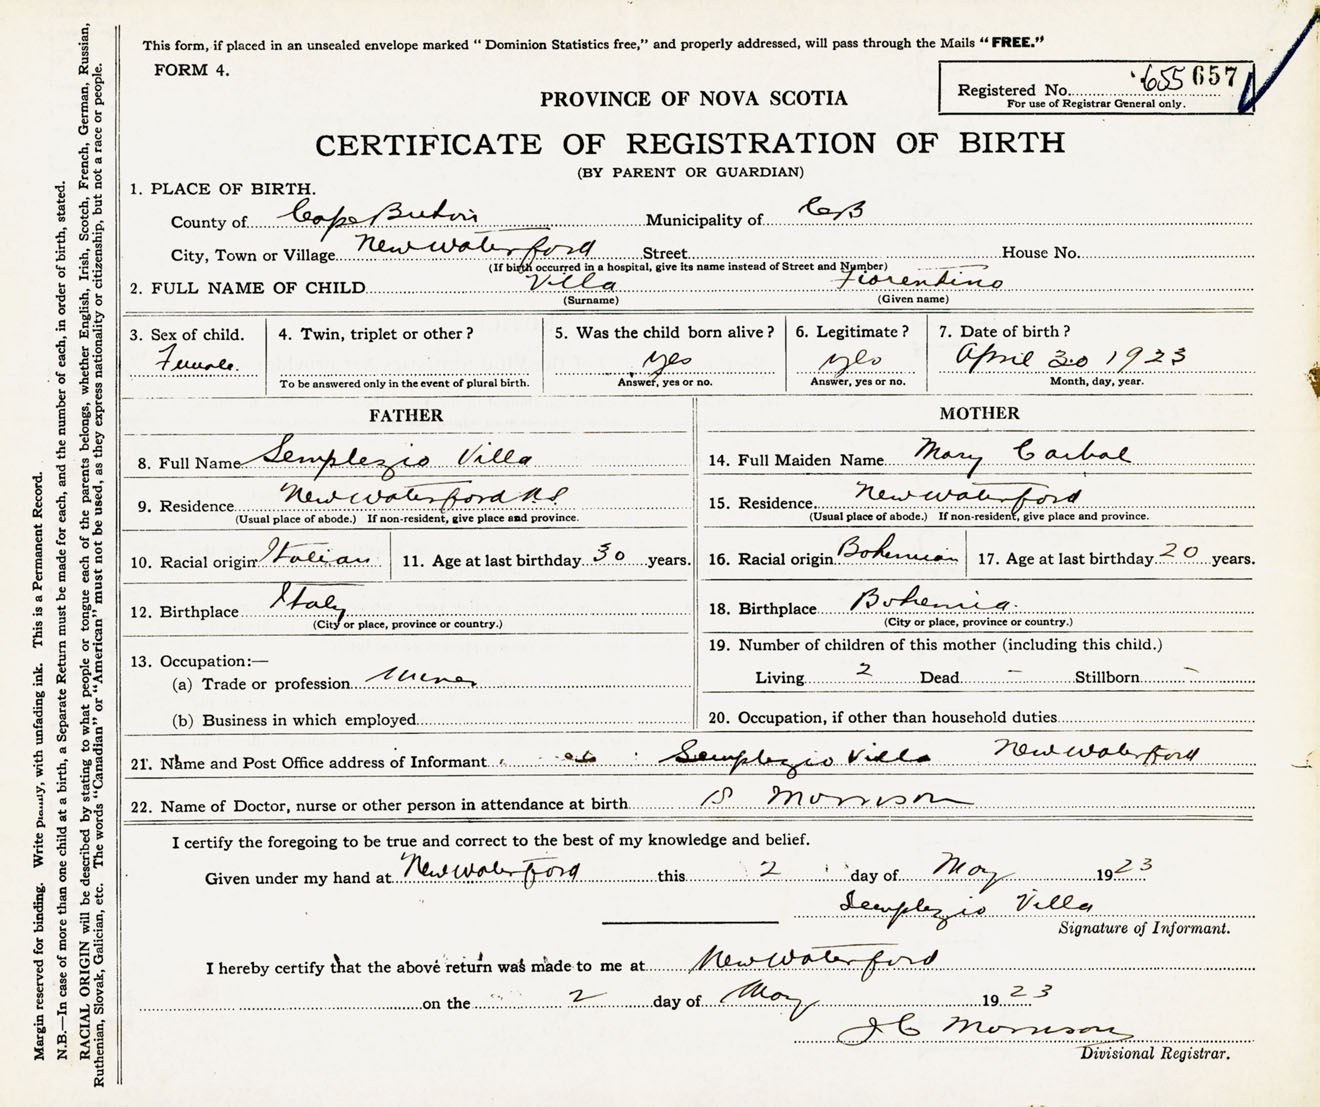 This form, if placed in an unsealed envelope marked “ Dominion Statistics free,” and properly addressed, will pass through the Mails “ FREE.”
FORM 4.
Registered No. 655 657
For use of Registrar General only.
PROVINCE OF NOVA SCOTIA
CERTIFICATE OF REGISTRATION OF BIRTH
(BY PARENT OR GUARDIAN)
1. PLACE OF BIRTH.
County of Cape Breton Municipality of C B
City, Town or Village New Waterford Street House No.
(If birth occurred in a hospital, give its name instead of Street and Number)
2. FULL NAME OF CHILD Villa Fiorentino
(Surname) (Given name)
3. Sex of child. 4. Twin, triplet or other ? 5. Was the child born alive ? 6. Legitimate ? 7. Date of birth ?
Female. yes yes April 30 1923
To be answered only in the event of plural birth. Answer, yes or no. Answer, yes or no. Month, day, year.
FATHER MOTHER
8. Full Name Semplezio Villa 14. Full Maiden Name Mary Carbol
9. Residence New Waterford N.S. 15. Residence New Waterford
(Usual place of abode.) If non-resident, give place and province. (Usual place of abode.) If non-resident, give place and province.
10. Racial origin Italian 11. Age at last birthday 30 years. 16. Racial origin Bohemian 17. Age at last birthday 20 years.
12. Birthplace Italy 18. Birthplace Bohemia.
(City or place, province or country.) (City or place, province or country.)
13. Occupation:— 19. Number of children of this mother (including this child.)
(a) Trade or profession Miner Living 2 Dead – Stillborn –
(b) Business in which employed 20. Occupation, if other than household duties
21. Name and Post Office address of Informant Semplezio Villa New Waterford
22. Name of Doctor, nurse or other person in attendance at birth Morrison
I certify the foregoing to be true and correct to the best of my knowledge and belief.
Given under my hand at New Waterford this 2 day of May 1923
Semplezio Villa
Signature of Informant.
I hereby certify that the above return was made to me at New Waterford
on the 2 day of May 1923
J C Morrison
Divisional Registrar.
Margin reserved for binding. Write plainly, with unfading ink. This is a Permanent Record.
N.B.—In case of more than one child at a birth, a Separate Return must be made for each, and the number of each, in order of birth, stated.
RACIAL ORIGIN will be described by stating to what people or tongue each of the parents belongs, whether English, Irish, Scotch, French, German, Russian,
Ruthenian, Slovak, Galician, etc. The words “Canadian” or “American” must not be used, as they express nationality or citizenship, but not a race or people.